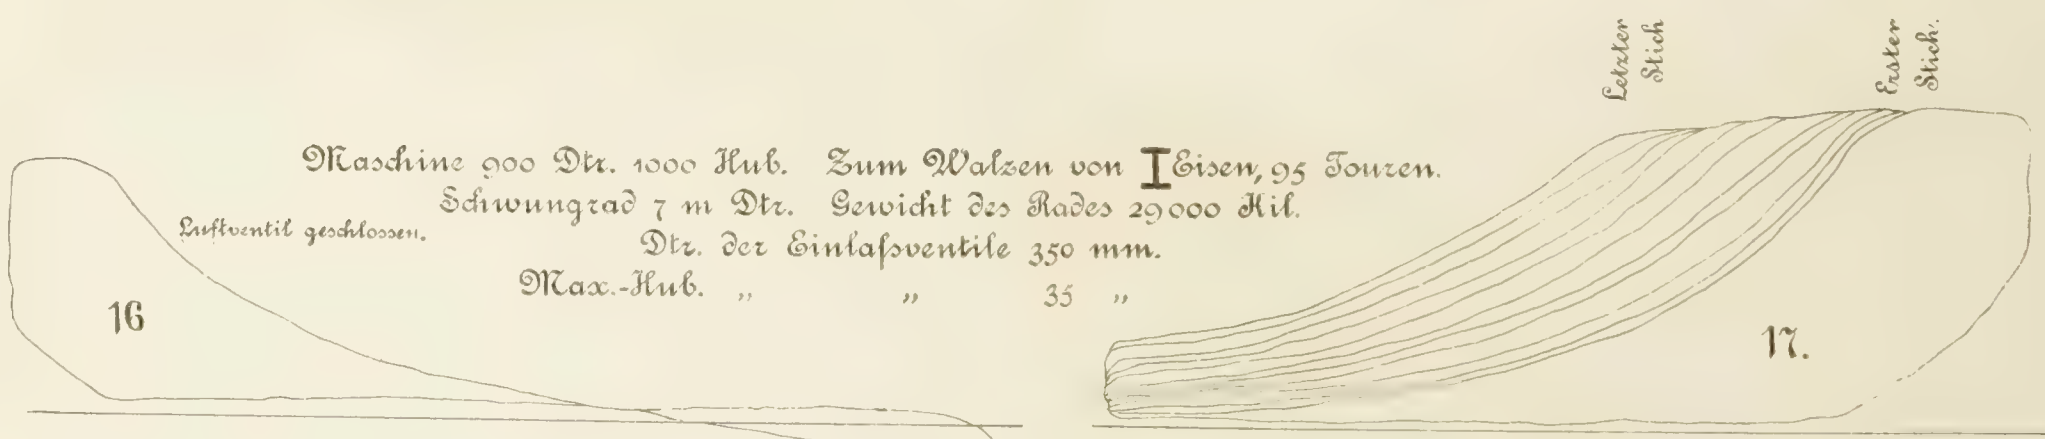 Letzter
Stich
Erster
Stich.
Maschine 900 Dtr. 1000 Hub. Zum Walzen von I Eisen, 95 Touren.
Schwungrad 7 m Dtr. Gewicht des Rades 29000 Kil.
Luftventil geschlossen.
Dtr. der Einlaßventile 350 mm.
Max.-Hub. „ „ 35 „
16
17.